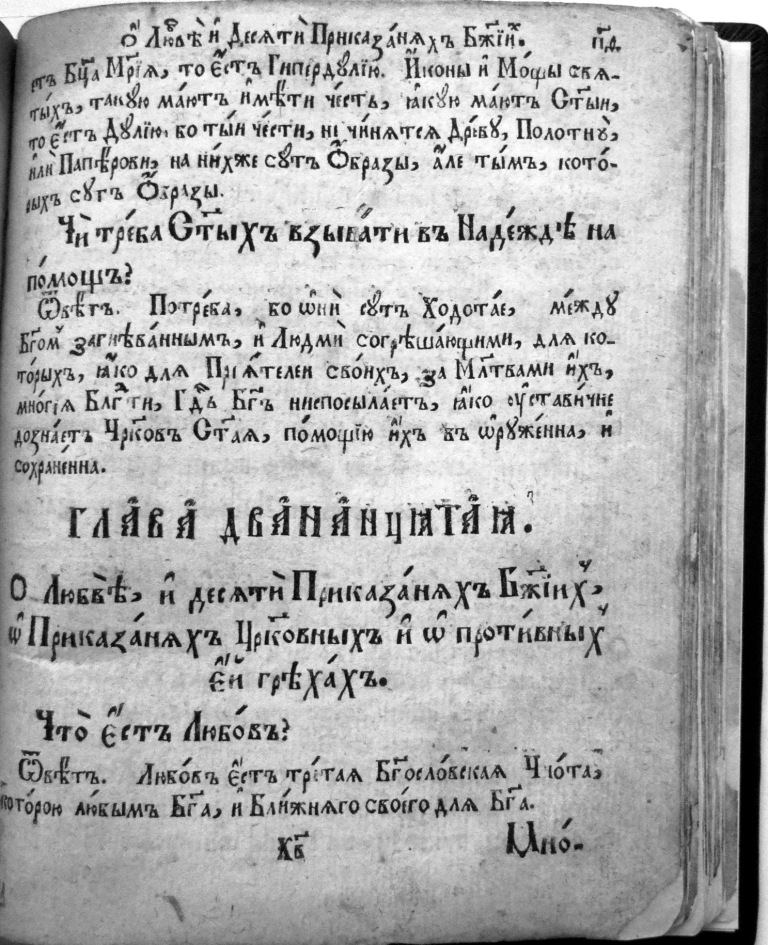 Ѻ҆ Лю́бвѣ и҆ Десѧтѝ Приказа́нѧхъ Бж҃їиⷯ. п҃ѳ.
етъ Бц҃а Мр҃їѧ, то є҆́стъ Гипердꙋлїю. И҆коны и҆ Мо́щы свѧ-
ты́хъ, такꙋю ма́ютъ и҆мѣ́ти че́сть, ꙗ҆́кꙋю ма́ютъ Ст҃ыи,
то є҆́стъ Дꙋлїю. бо ты́и че́сти, не чинѧтсѧ Дре́вꙋ, Полотнꙋ̀,
илѝ Папѣ́рови, на ни́хже сꙋтъ Ѻ҆́бразы, а҆́ле ты́мъ, кото́-
рыхъ сꙋтъ Ѻ҆́бразы.
Чѝ тре́ба Ст҃ы́хъ взыва́ти въ Наде́ждѣ на
по́мощъ?
Ѿвѣ́тъ. Потре́ба, бо ѡ҆нѝ сꙋтъ Ходота́е, ме́ждꙋ
Бг҃омъ загнѣ́ваннымъ, и҆ Людмѝ согрѣша́ющими, для ко-
то́рыхъ, ꙗ҆́ко для Прїѧ́телеи свои́хъ, за Мл҃твами и҆́хъ,
мно́гїѧ Блг҃ти, Гд҃ь Бг҃ъ ниспосыла́етъ, ꙗ҆́ко ᲂу҆стави́чне
дозна́етъ Чр҃ковъ Ст҃аѧ, по́мощїю и҆́хъ въ ѡ҆рꙋже́нна, и҆
сохране́нна.
ГЛА́ВА̀ ДВА́НА́НЦꙖТА́Ꙗ.
О Лю́бвѣ, и҆ десѧтѝ Приказа́нѧхъ Бж҃їихъ,
ѡ҆ Приказа́нѧхъ Црк҃овныхъ и҆ ѡ҆ проти́вныхъ
є҆́й грѣха́хъ.
Что̀ є҆́стъ Любо́въ?
Ѿвѣ́тъ. Любо́въ є҆́стъ тре́таѧ Бг҃осло́вскаѧ Чно́та,
кото́рою лю́бымъ Бг҃а, и҆ Бли́жнѧго своего̀ для Бг҃а.
Хв҃ Мно́-